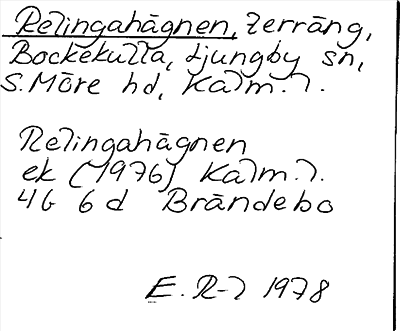 Relingahägnen, terräng,
Bockekulla, Ljungby sn,
S. Möre hd, Kalm. l.
Relingahägnen
ek (1976) Kalm. l.
4G 6d Brändebo
E. R-l 1978